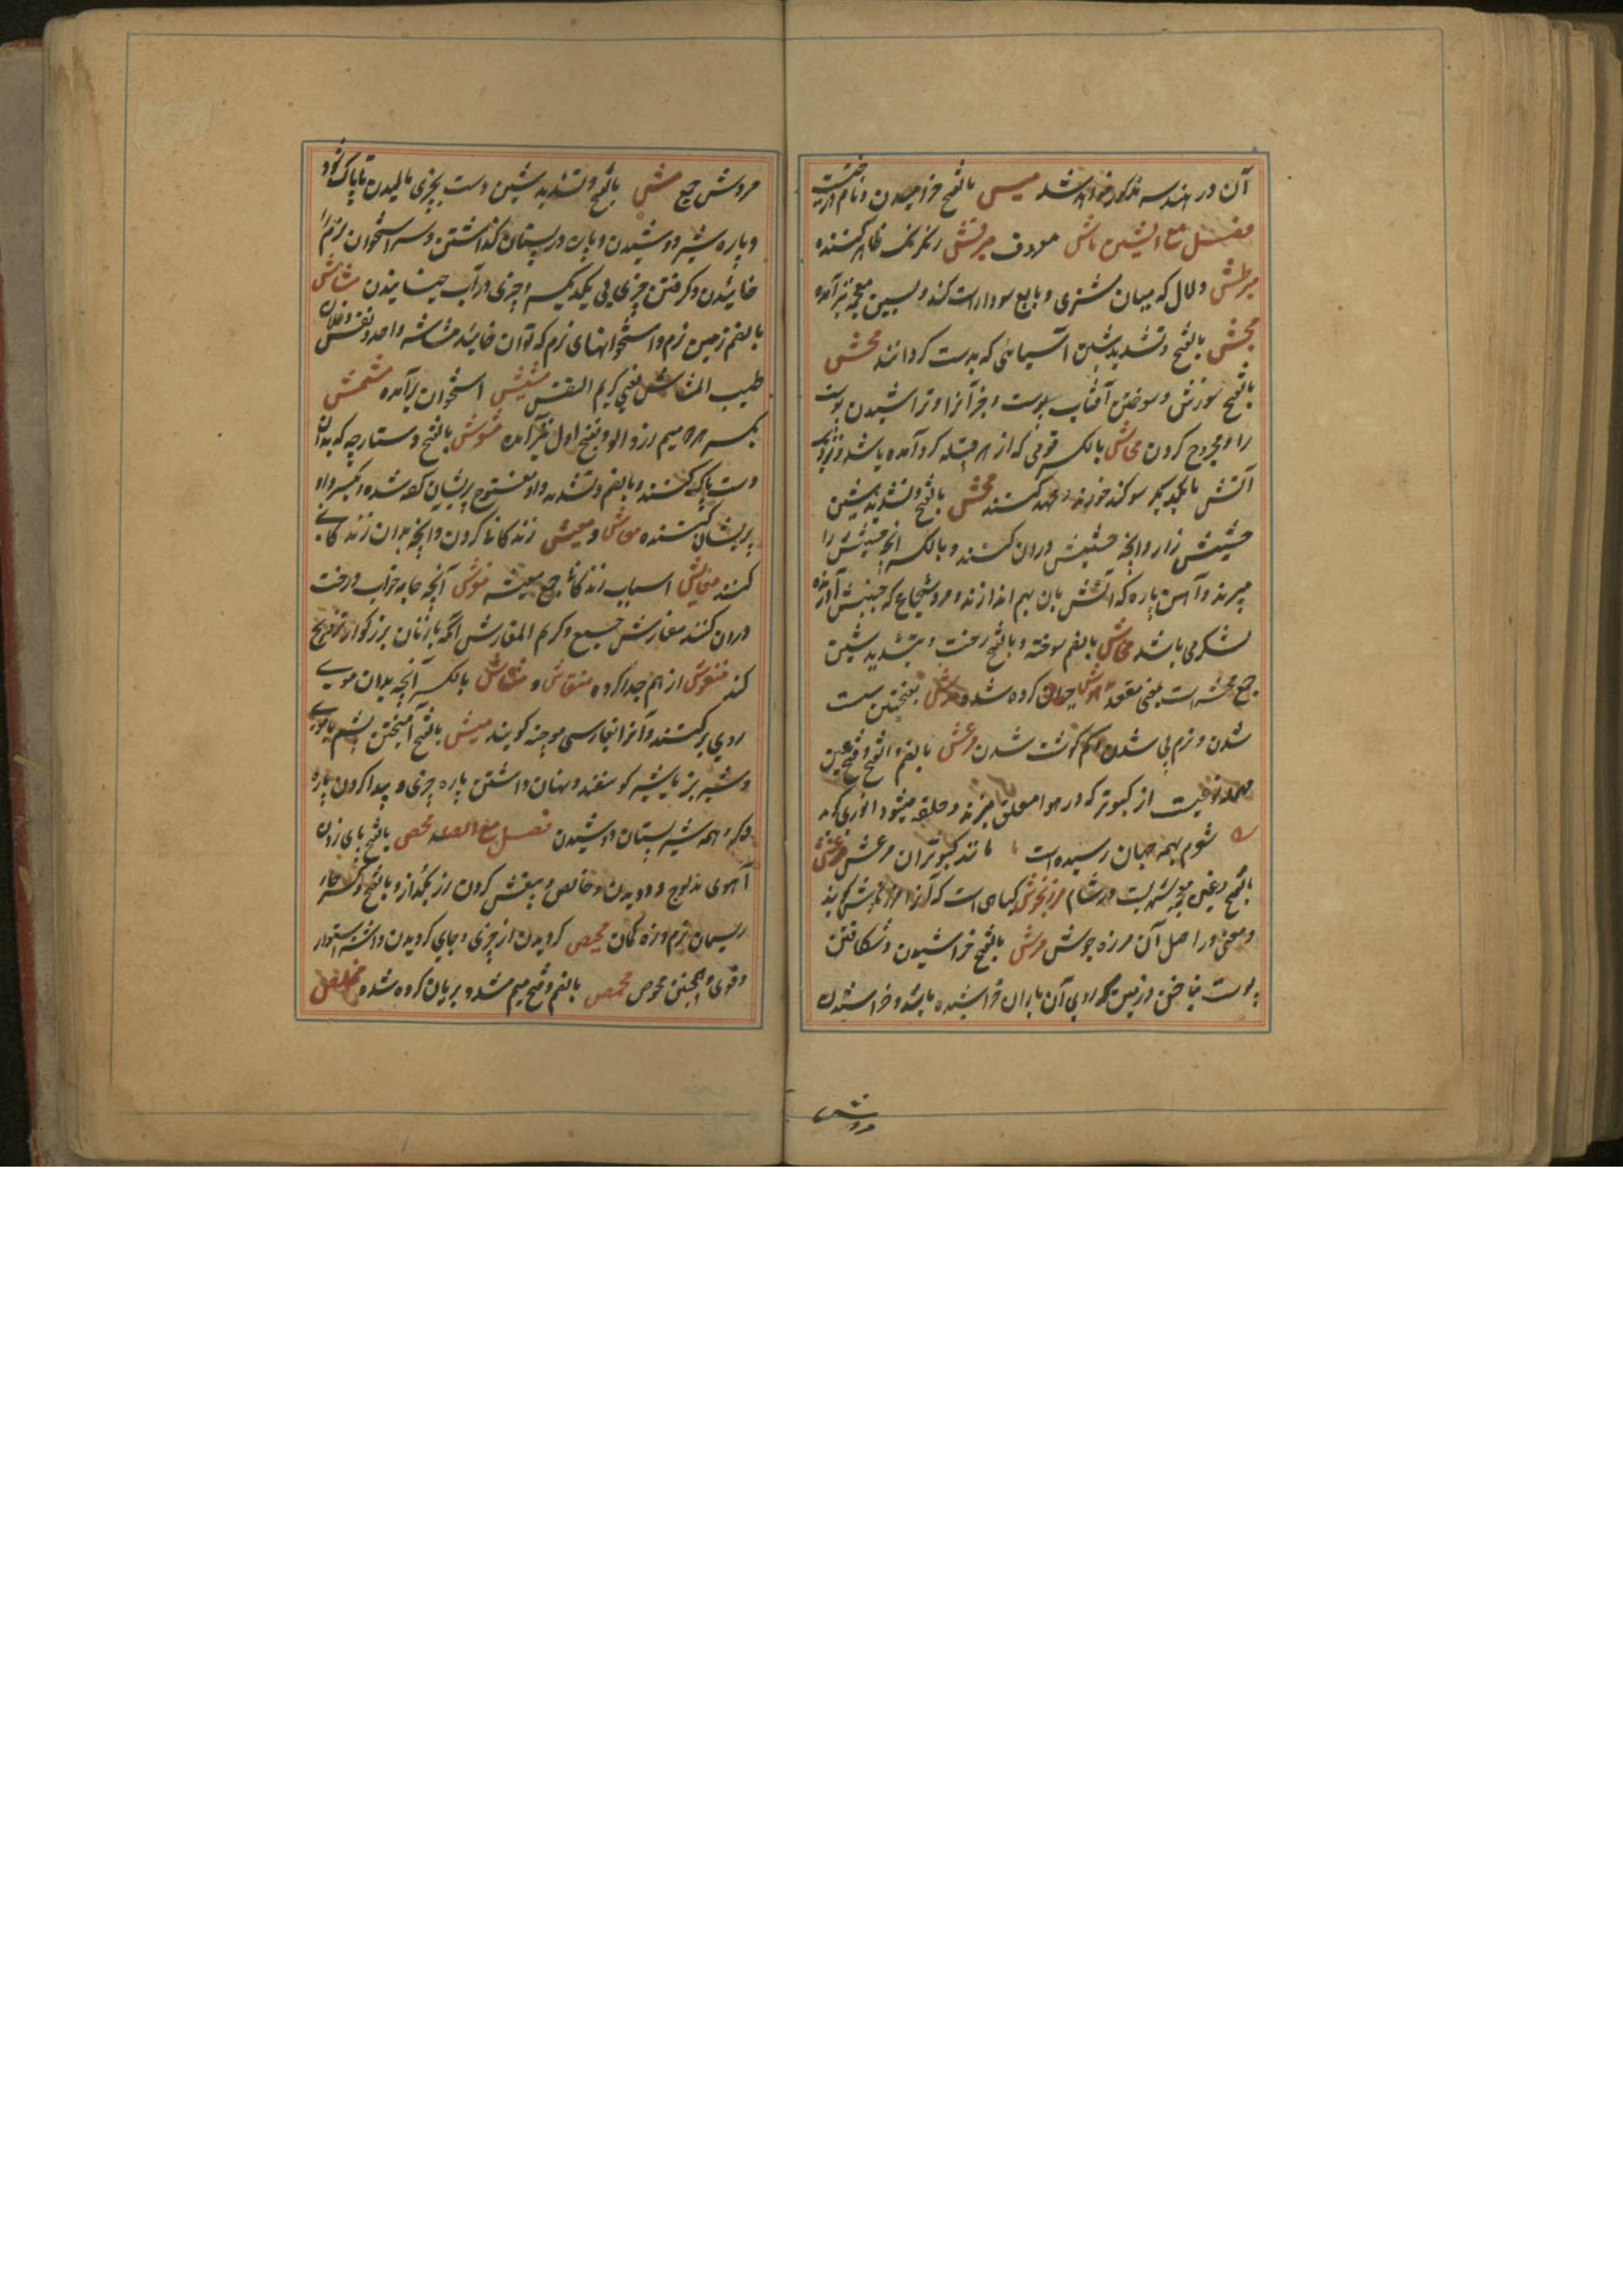 آن در هندسه مذکور خواهد شد میس بالفتح خرامیدن و نام درختیست
فصل مع الشین ماش معروف مبرقش رنگ رنگ ظاهر کننده
مبرطش دلال که میان مشتری و بایع سودا راست کند و بسین معجمه نیز آمده
مجش بالفتح و تشدید شین آسیایی که بدست گردانند محش
بالفتح سوزش و سوختن آفتاب پوست و جز آنرا و تراشیدن پوست
را و مجروح کردن محاش بالکسر قومی که از هر قبیله گرد آمده باشند و نزدیک
آتش بایکدیگر سوگند خورند و عهد کنند محش بالفتح و تشدید شین
حشیش زار و آنچه حشیش دران کنند و بالکسر آنچه حشیش را
میبرند و آهن پاره که آتش بان بهم اندازند و مرد شجاع که جنبش آرنده
لشکری باشد محاش بالضم سوخته و بالفتح رخت و بتشدید شین
جمع محشه است یعنی مقعد کرده شده بفتحتین سست
شدن و نرم پی شدن و کم گوشت شدن مرعش بالضم و الفتح و فتح عین
مهمله نوعیست از کبوتر که در هوا معلق میزند و حلقه میشود انوری گوید
شوم بهمه جهان رسیده است مانند کبوتران مرعش مرغش
بالفتح و غین معجمه شهریست در شام مرزنجوش گیاهی است که آنرا مرزنگوش گویند
و معنی در اصل آن مرزه جوش مرش بالفتح خراشیدن و شکافتن
پوست بناخن و زمین که روی آن باران خراشیده باشد و خراشیدن
مروش
مروش جمع مش بالفتح و تشدید شین دست بچیزی مالیدن تا پاک شود
و پاره شیر دوشیدن و پاره در پستان گذاشتن و سر استخوان نرم را
خائیدن و گرفتن چیزی پی یکدیگر و چیزی در آب خیسانیدن مشاش
بالضم زمین نرم و استخوانهای نرم که توان خائید مشاشه واحد و نفس و فلان
طیب المشاش یعنی کریم النفس مشیش استخوان برآمده مشمش
بکسر هر دو میم زردالو و بفتح اول نیز آمده مشوش بالفتح دستارچه که بدان
دست پاک کنند و بالضم و تشدید واو مفتوح پریشان کرده شده و بکسر واو
پریشان کننده معاش و معیش زندگانی کردن و آنچه بدان زندگانی
کنند معایش اسباب زندگانی جمع معیشه مفرش آنچه جامه خواب و رخت
دران کنند مفارش جمع و کریم المفارش آنکه با زنان بزرگوار تزویج
کند منقوش از هم جدا کرده منقاش و منتاش بالکسر آنچه بدان موی
روی برکنند و آنرا بفارسی موچنه گویند میش بالفتح آمیختن پشم با موی
و شیر بز با شیر گوسفند و نهان داشتن پاره چیزی و پیدا کردن پاره
دیگر و همه شیر پستان دوشیدن فصل مع الصاد محص بالفتح پای زدن
آهوی مذبوح و دویدن و خالص و بیغش کردن زر بگداز و بالفتح و کسر حاء
ریسمان نرم و زه کمان محیص گردیدن از چیزی و جای گردیدن و استوار
و قوی و همچنین محوص محمص بالضم و فتح میم مشدد بریان کرده شده مخلص